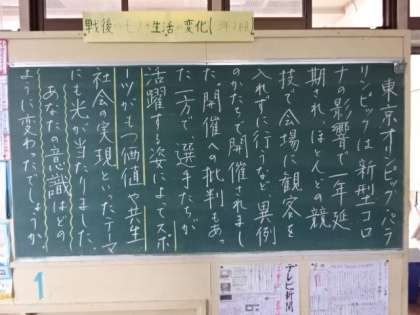 戦後
生活の変化
東京オリンピック・パラ
リンピックは新型コロ
ナの影響で一年延
期され、ほとんどの競
技で会場に観客を
入れずに行うなど異例
のかたちで開催されまし
た。開催への批判もあっ
た一方で、選手たちが
活躍する姿によってスポ
ーツがもつ価値や共生
社会の実現といったテーマ
にも光が当たりました。
あなたの意識はどの
ように変わったでしょうか
1
テレビ新聞